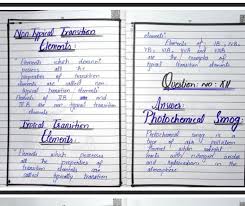 Non Typical Transition
Elements:
Elements which doesn't
possess all the
properties of transition
elements are called non
typical transition elements
Periods of IB and
IIB are non typical transition
elements.
Typical Transition
Elements:
Elements which possesses
all the properties of
transition elements are
called typically transition
elements
Elements of
VB, VIB, VIIB and VIIIB
are the examples of
typical transition elements
Question no: XII
Answer:
Photochemical Smog:
Photochemical smog is a
type of air pollution
formed when sunlight
reacts with nitrogen oxides
and hydrocarbons in the
atmosphere